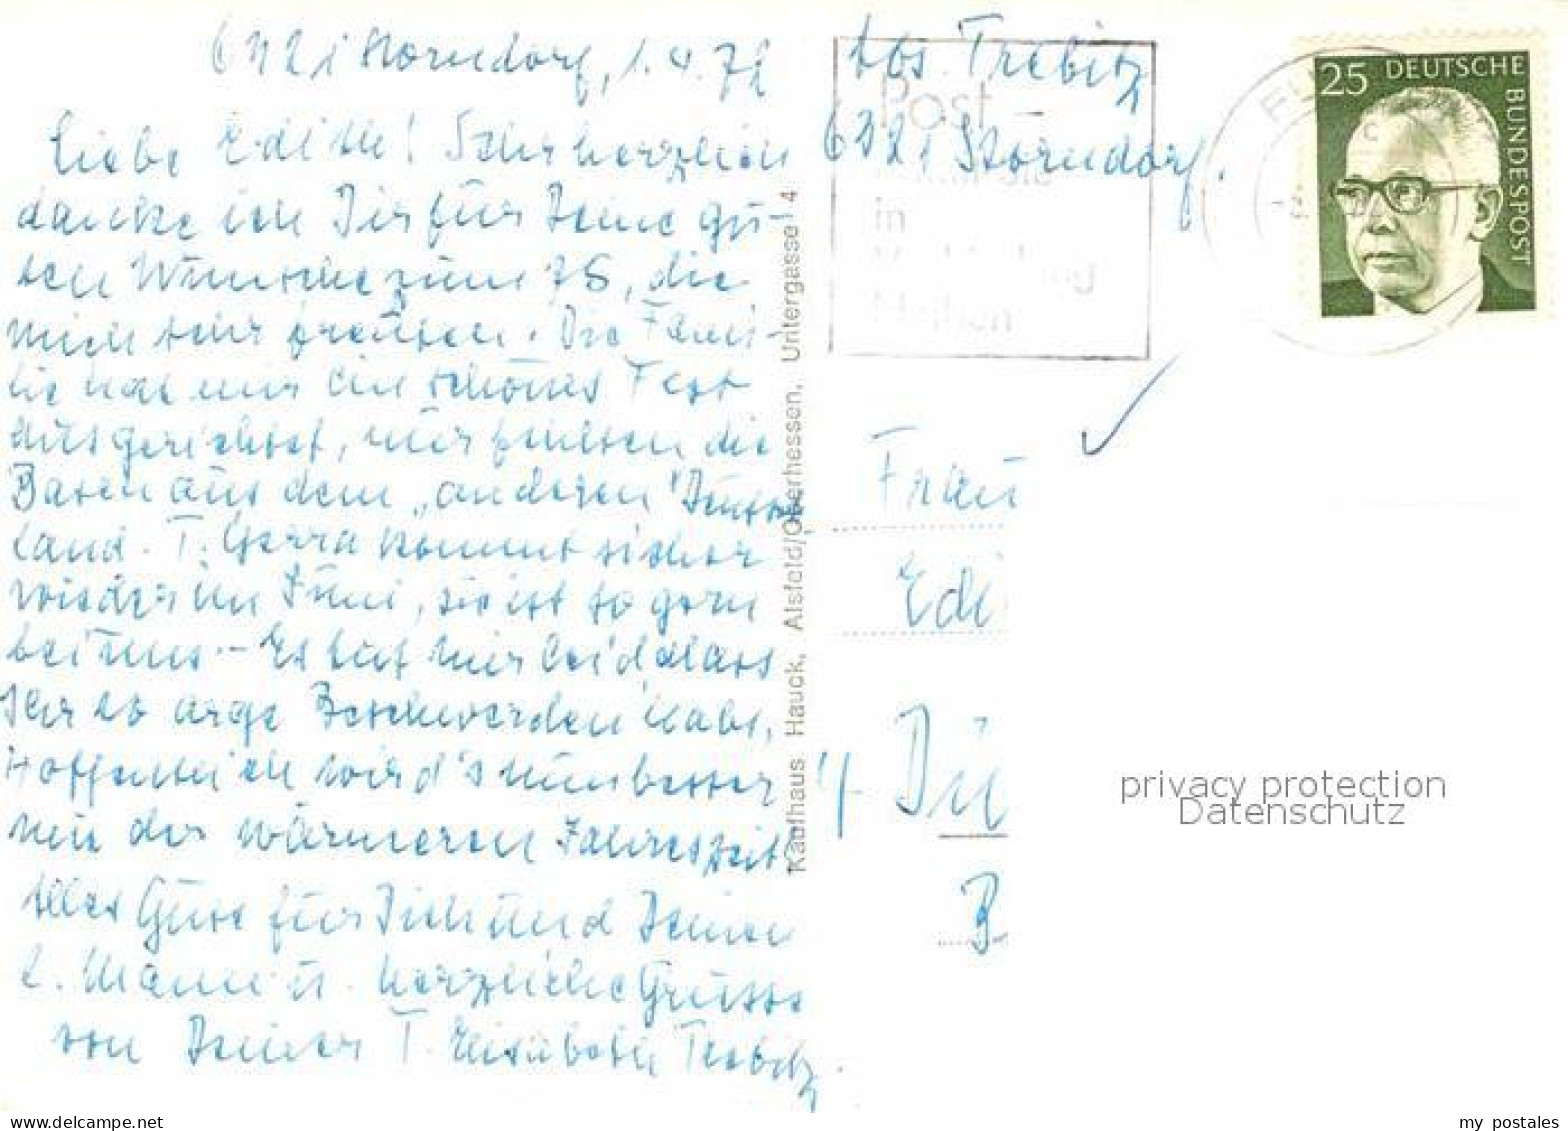 6321 Storndorf, 1.4.72
Liebe Edith! Sehr herzlich
danke ich Dir für Deine gu-
ten Wünsche zum 75, die
mich sehr freuten. Die Fami-
lie hat mir ein schönes Fest
ausgerichtet, nur fehlten die
Basen aus dem „anderen" Deutsch
land. T. Gerra kommt sicher
wieder im Juni, sie ist so gern
bei uns. - Es tut mir leid, dass
Ihr so arge Beschwerden habt,
Hoffentlich wird's nun besser
mit der wärmeren Jahreszeit.
Alles Gute für Dich und Deinen
l. Mann u. herzliche Grüsse
von Deiner T. Elisabeth Trebitz.
Kaufhaus Hauck, Alsfeld/Oberhessen, Untergasse 4
Abs. Trebitz
6321 Storndorf.
Post
in
25 DEUTSCHE
BUNDESPOST
Frau
Edi
4 Dü
B
privacy protection
Datenschutz
my postales